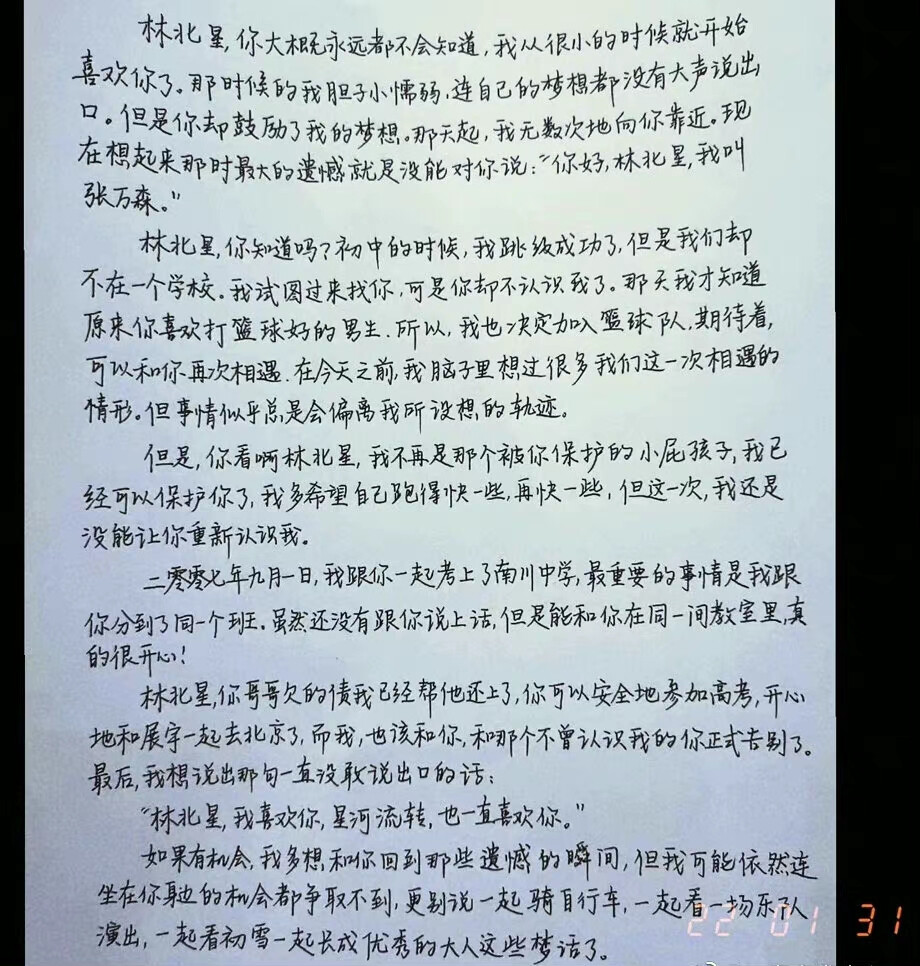 林北星，你大概永远都不会知道，我从很小的时候就开始
喜欢你了。那时候的我胆子小懦弱，连自己的梦想都没有大声说出
口。但是你却鼓励了我的梦想。那天起，我无数次地向你靠近。现
在想起来那时最大的遗憾就是没能对你说：“你好，林北星，我叫
张万森。”
林北星，你知道吗？初中的时候，我跳级成功了，但是我们却
不在一个学校。我试图过来找你，可是你却不认识我了。那天我才知道
原来你喜欢打篮球好的男生。所以，我也决定加入篮球队，期待着，
可以和你再次相遇．在今天之前，我脑子里想过很多我们这一次相遇的
情形。但事情似乎总是会偏离我所设想的轨迹。
但是，你看啊林北星，我不再是那个被你保护的小屁孩子，我已
经可以保护你了，我多希望自己跑得快一些，再快一些，但这一次，我还是
没能让你重新认识我。
二零零七年九月一日，我跟你一起考上了南川中学，最重要的事情是我跟
你分到了同一个班．虽然还没有跟你说上话，但是能和你在同一间教室里，真
的很开心！
林北星，你哥哥欠的债我已经帮他还上了，你可以安全地参加高考，开心
地和展宇一起去北京了，而我，也该和你，和那个不曾认识我的你正式告别了。
最后，我想说出那句一直没敢说出口的话：
“林北星，我喜欢你，星河流转，也一直喜欢你。”
如果有机会，我多想和你回到那些遗憾的瞬间，但我可能依然连
坐在你身边的机会都争取不到，更别说一起骑自行车，一起看一场乐队
演出，一起看初雪一起长成优秀的大人这些梦话了。
22 01 31